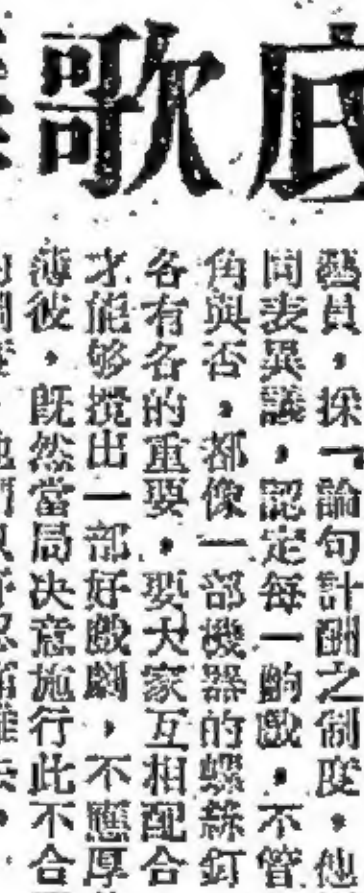 底歌
藝員，採一論句計酬之制度，他
同表異議，認定每一齣戲，不管
角與否，都像一部機器的螺絲釘
各有各的重要，要大家互相配合
才能够攪出一部好戲劇，不應厚
薄彼，既然當局決意施行此不合